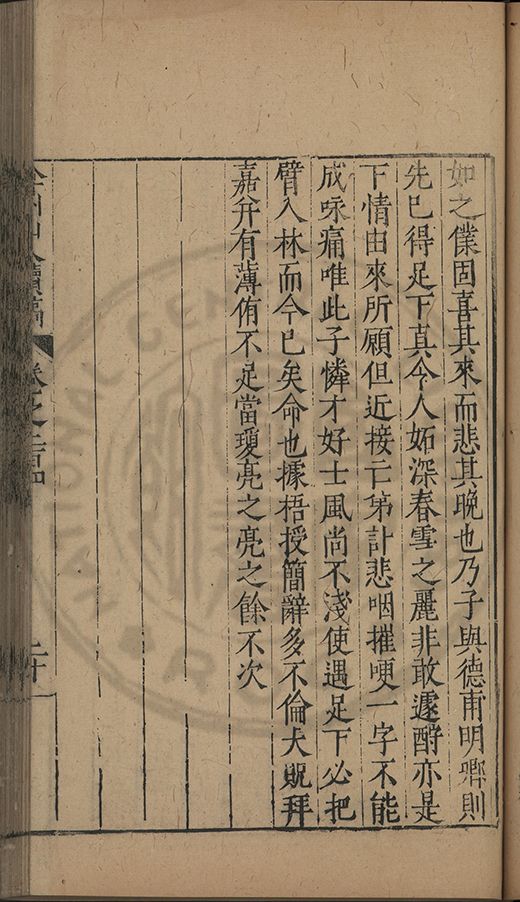 如之僕固喜其來而悲其晚也乃子與德甫明卿則
先已得足下真令人妬深春雪之麗非敢遽酧亦是
下情由來所願但近接二弟計悲咽摧哽一字不能
成咏痛唯此子憐才好士風尚不淺使遇足下必把
臂入林而今已矣命也據梧授簡辭多不倫大貺拜
嘉并有薄侑不足當瓊亮之亮之餘不次
卷之
二十一